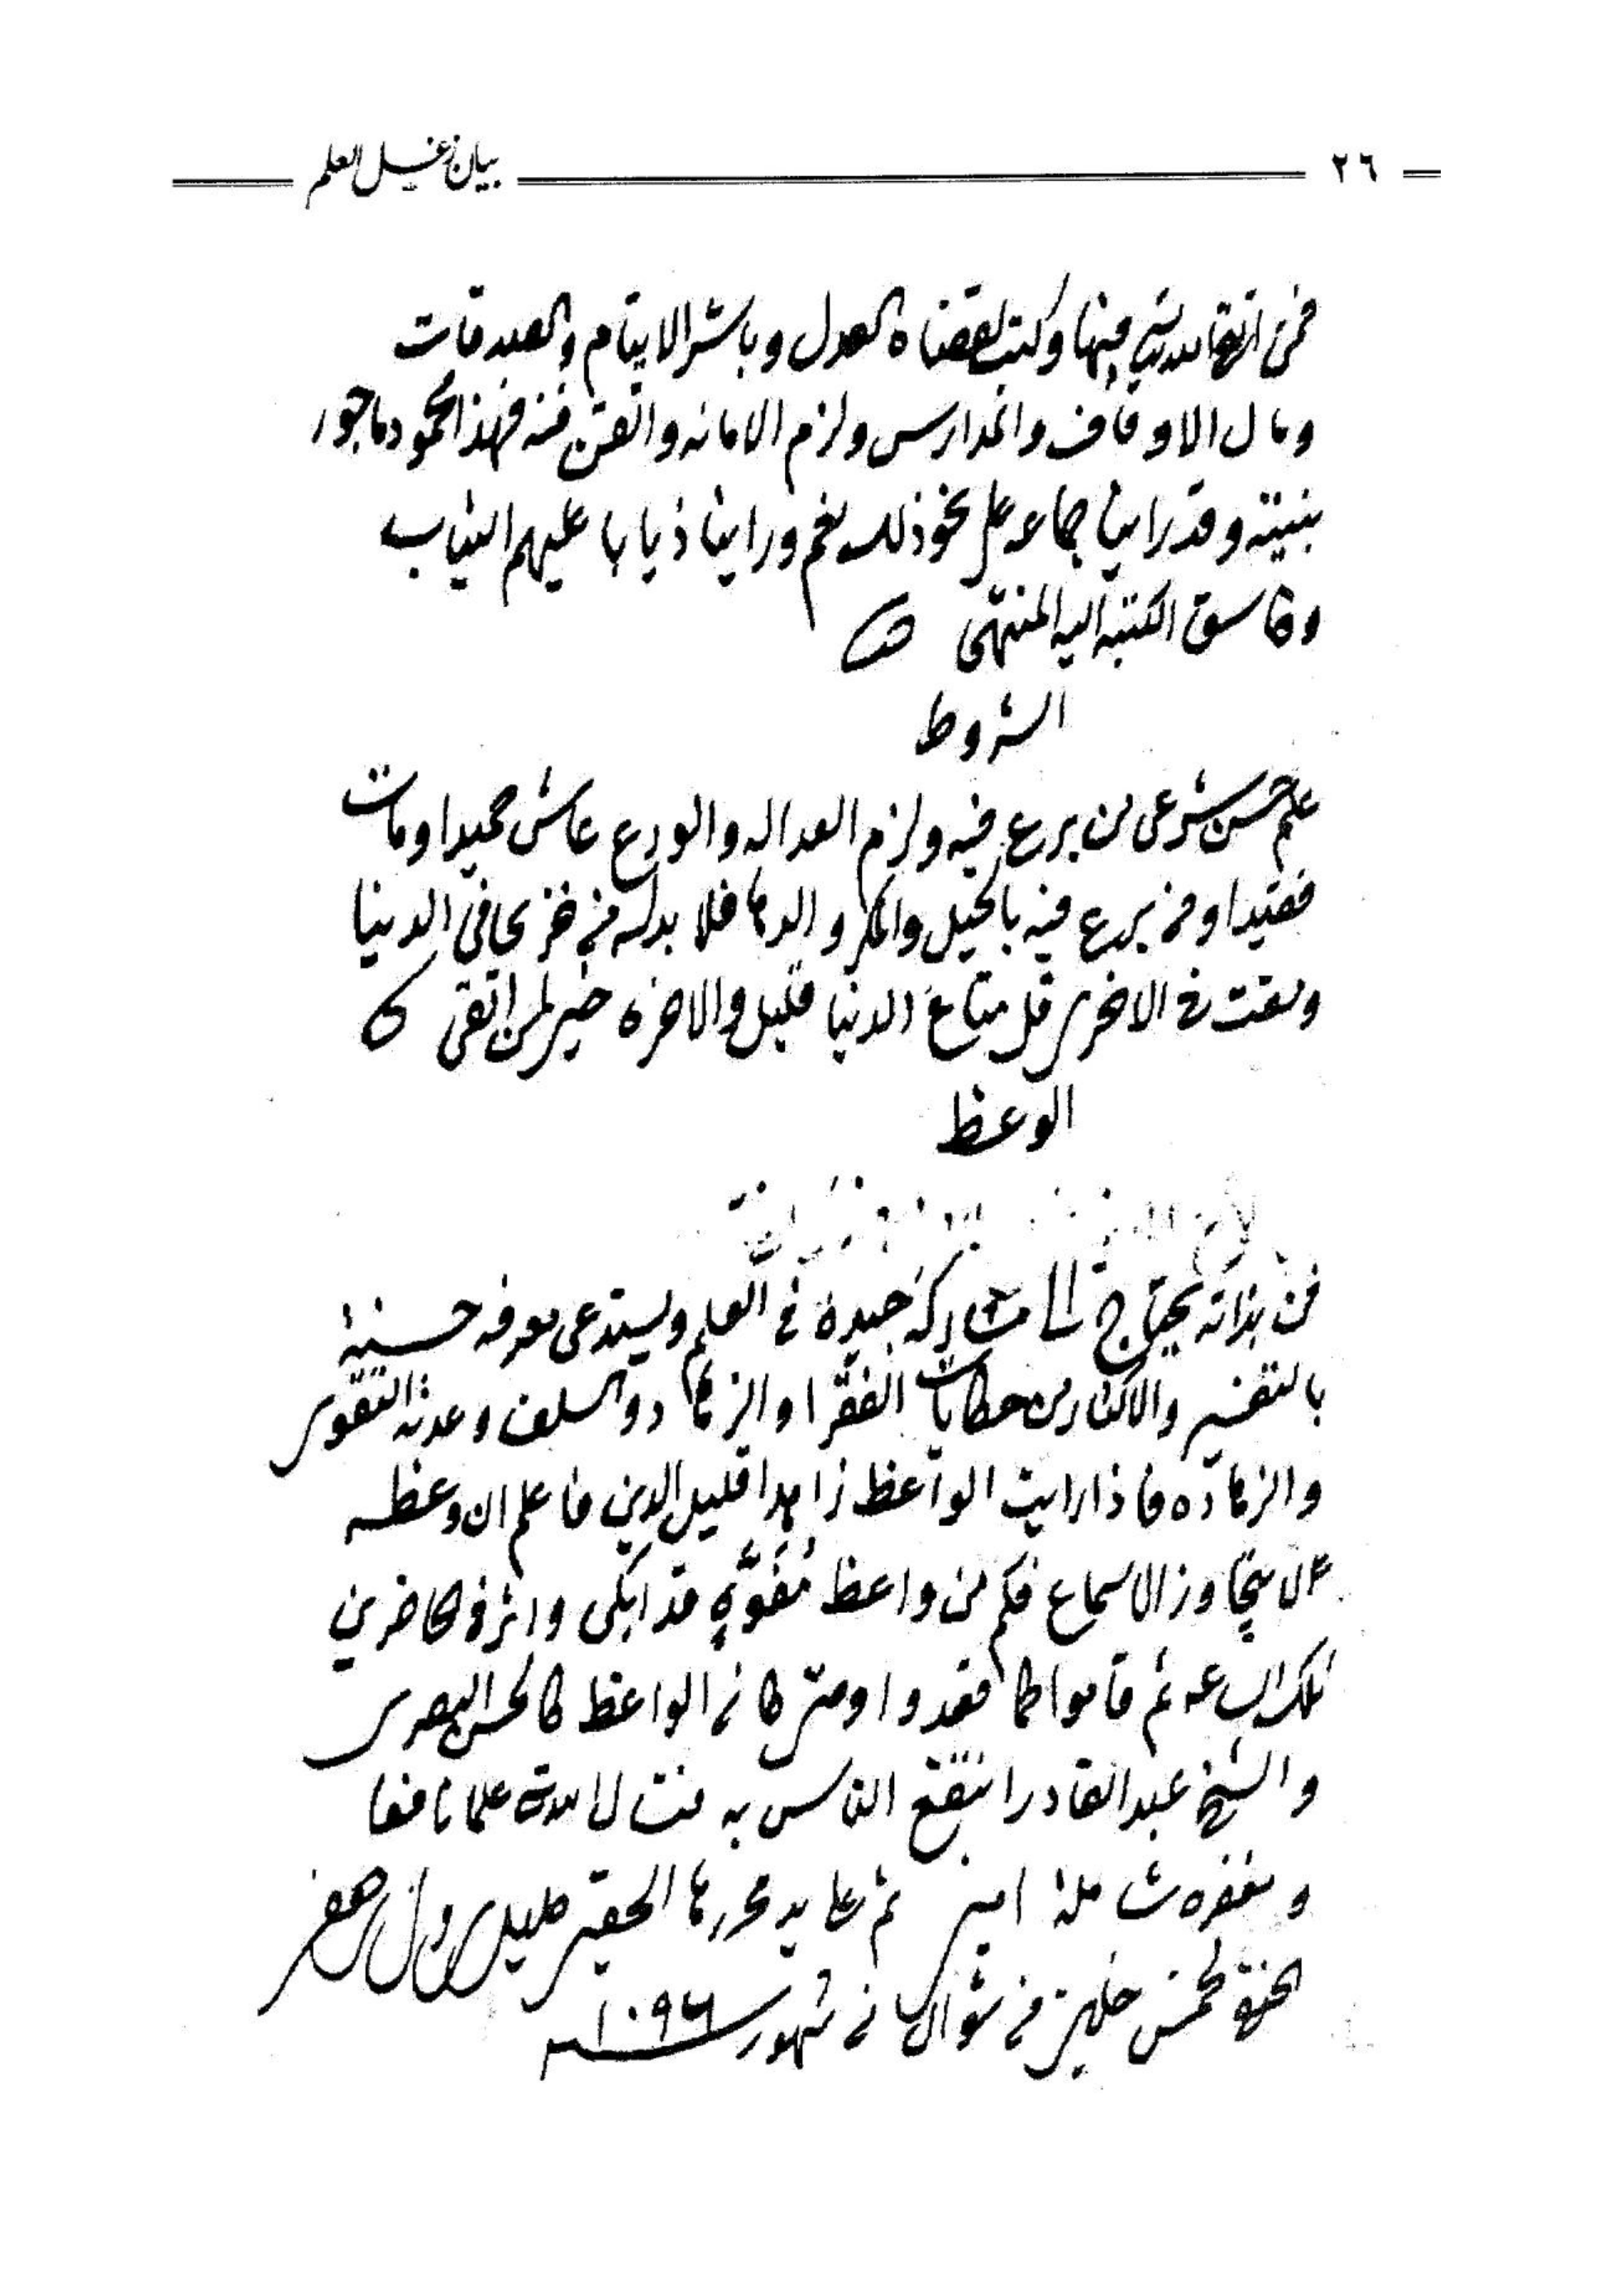 ٢٦
بيان زغل العلم
فمن اتقى الله فيها وكتب لقضاة العدل وباشر الايتام والصدقات
ومال الاوقاف والمدارس ولزم الامانه واتقن فنه فهذا محمود ماجور
بنيته وقد راينا جماعه على نحو ذلك نعم وراينا ذيابا عليهم الثياب
وفاسق الكتبه اليه المنتهى
الشروط
علم حسن شرعى من برع فيه ولزم العداله والورع عاش حميدا ومات
فقيدا ومن برع فيه بالحيل والمكر والدها فلا بد له من خزى فى الدنيا
ومقت فى الاخرى قل متاع الدنيا قليل والاخره خير لمن اتقى
الوعظ
فن بذاته يحتاج الى مشاركة جيدة فى العلم ويستدعى معرفه حسنة
بالتفسير والاكثار من حكايات الفقرا والزهاد والسلف وعدته التقوى
والزهاده فاذا رايت الواعظ زاهدا قليل الدين فاعلم ان وعظه
لا يتجاوز الاسماع فكم من واعظ مُفَوَّهٍ قد ابكى واثر فى الحاضرين
تلك الساعه ثم قاموا كما قعدوا ومتى كان الواعظ كالحسن البصرى
والشيخ عبد القادر انتفع الناس به فنسال الله علما نافعا
ومغفره شاملة امين تم على يد محررها الحقير خليل
فى شوال فى شهور سنة ١٠٩٦